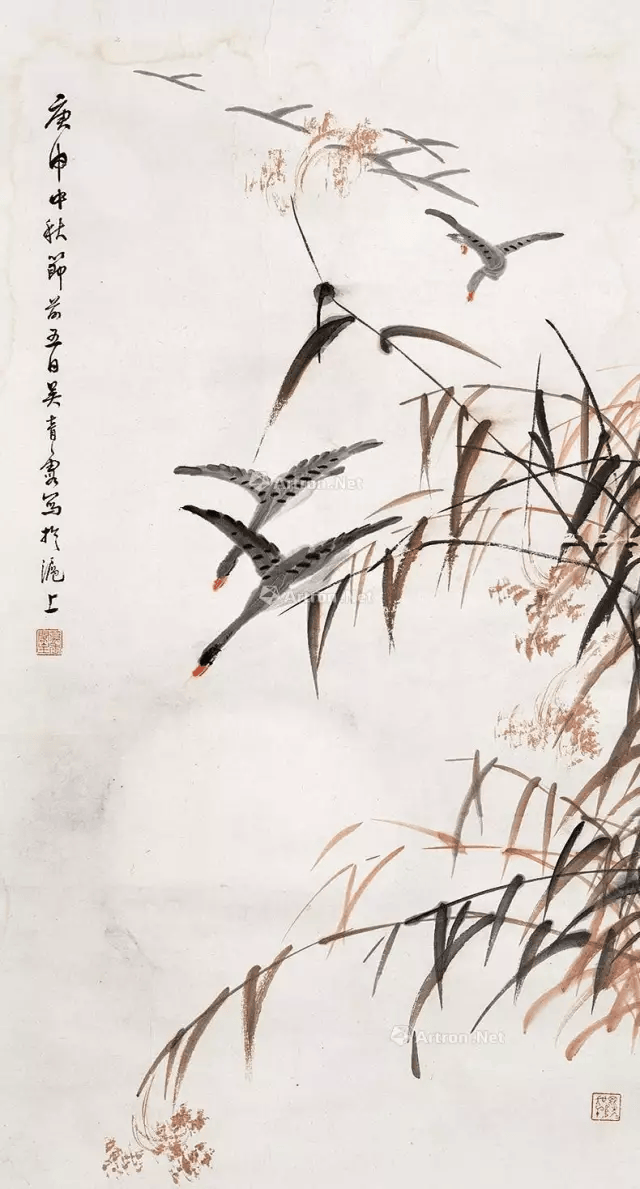 庚申中秋節前五日吴青霞寫於滬上
Artron.Net
Artron.Net
Artron.Net